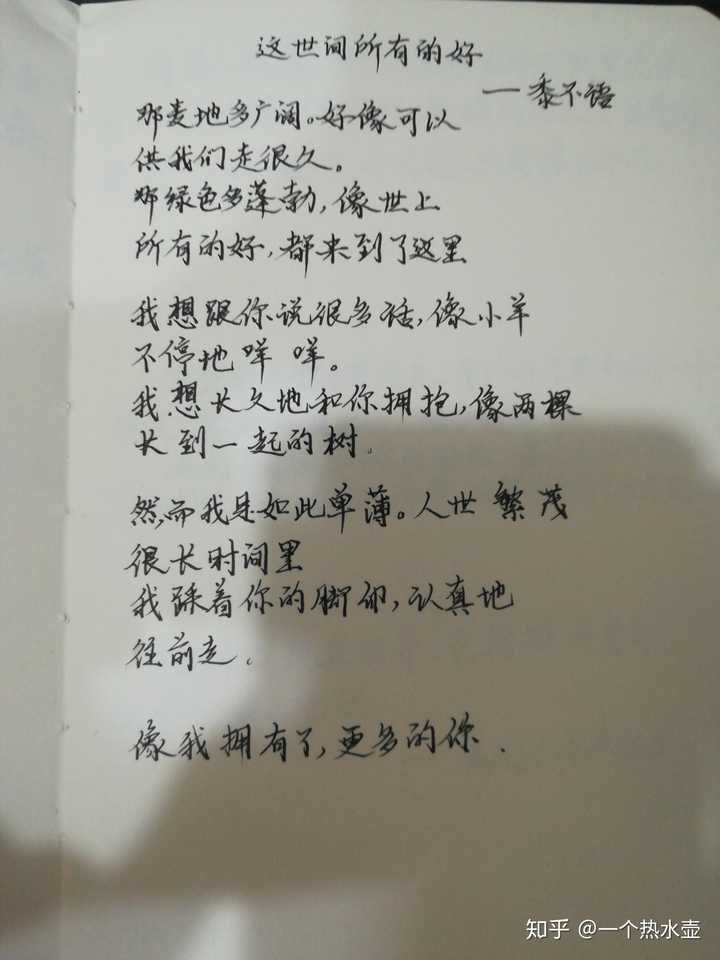 这世间所有的好
——黍不语
那麦地多广阔。好像可以
供我们走很久。
那绿色多蓬勃,像世上
所有的好,都来到了这里
我想跟你说很多话,像小羊
不停地咩 咩。
我想长久地和你拥抱,像两棵
长到一起的树.
然而我是如此单薄。人世 繁茂
很长时间里
我踩着你的脚印,认真地
往前走.
像我拥有了,更多的你.
知乎 @一个热水壶